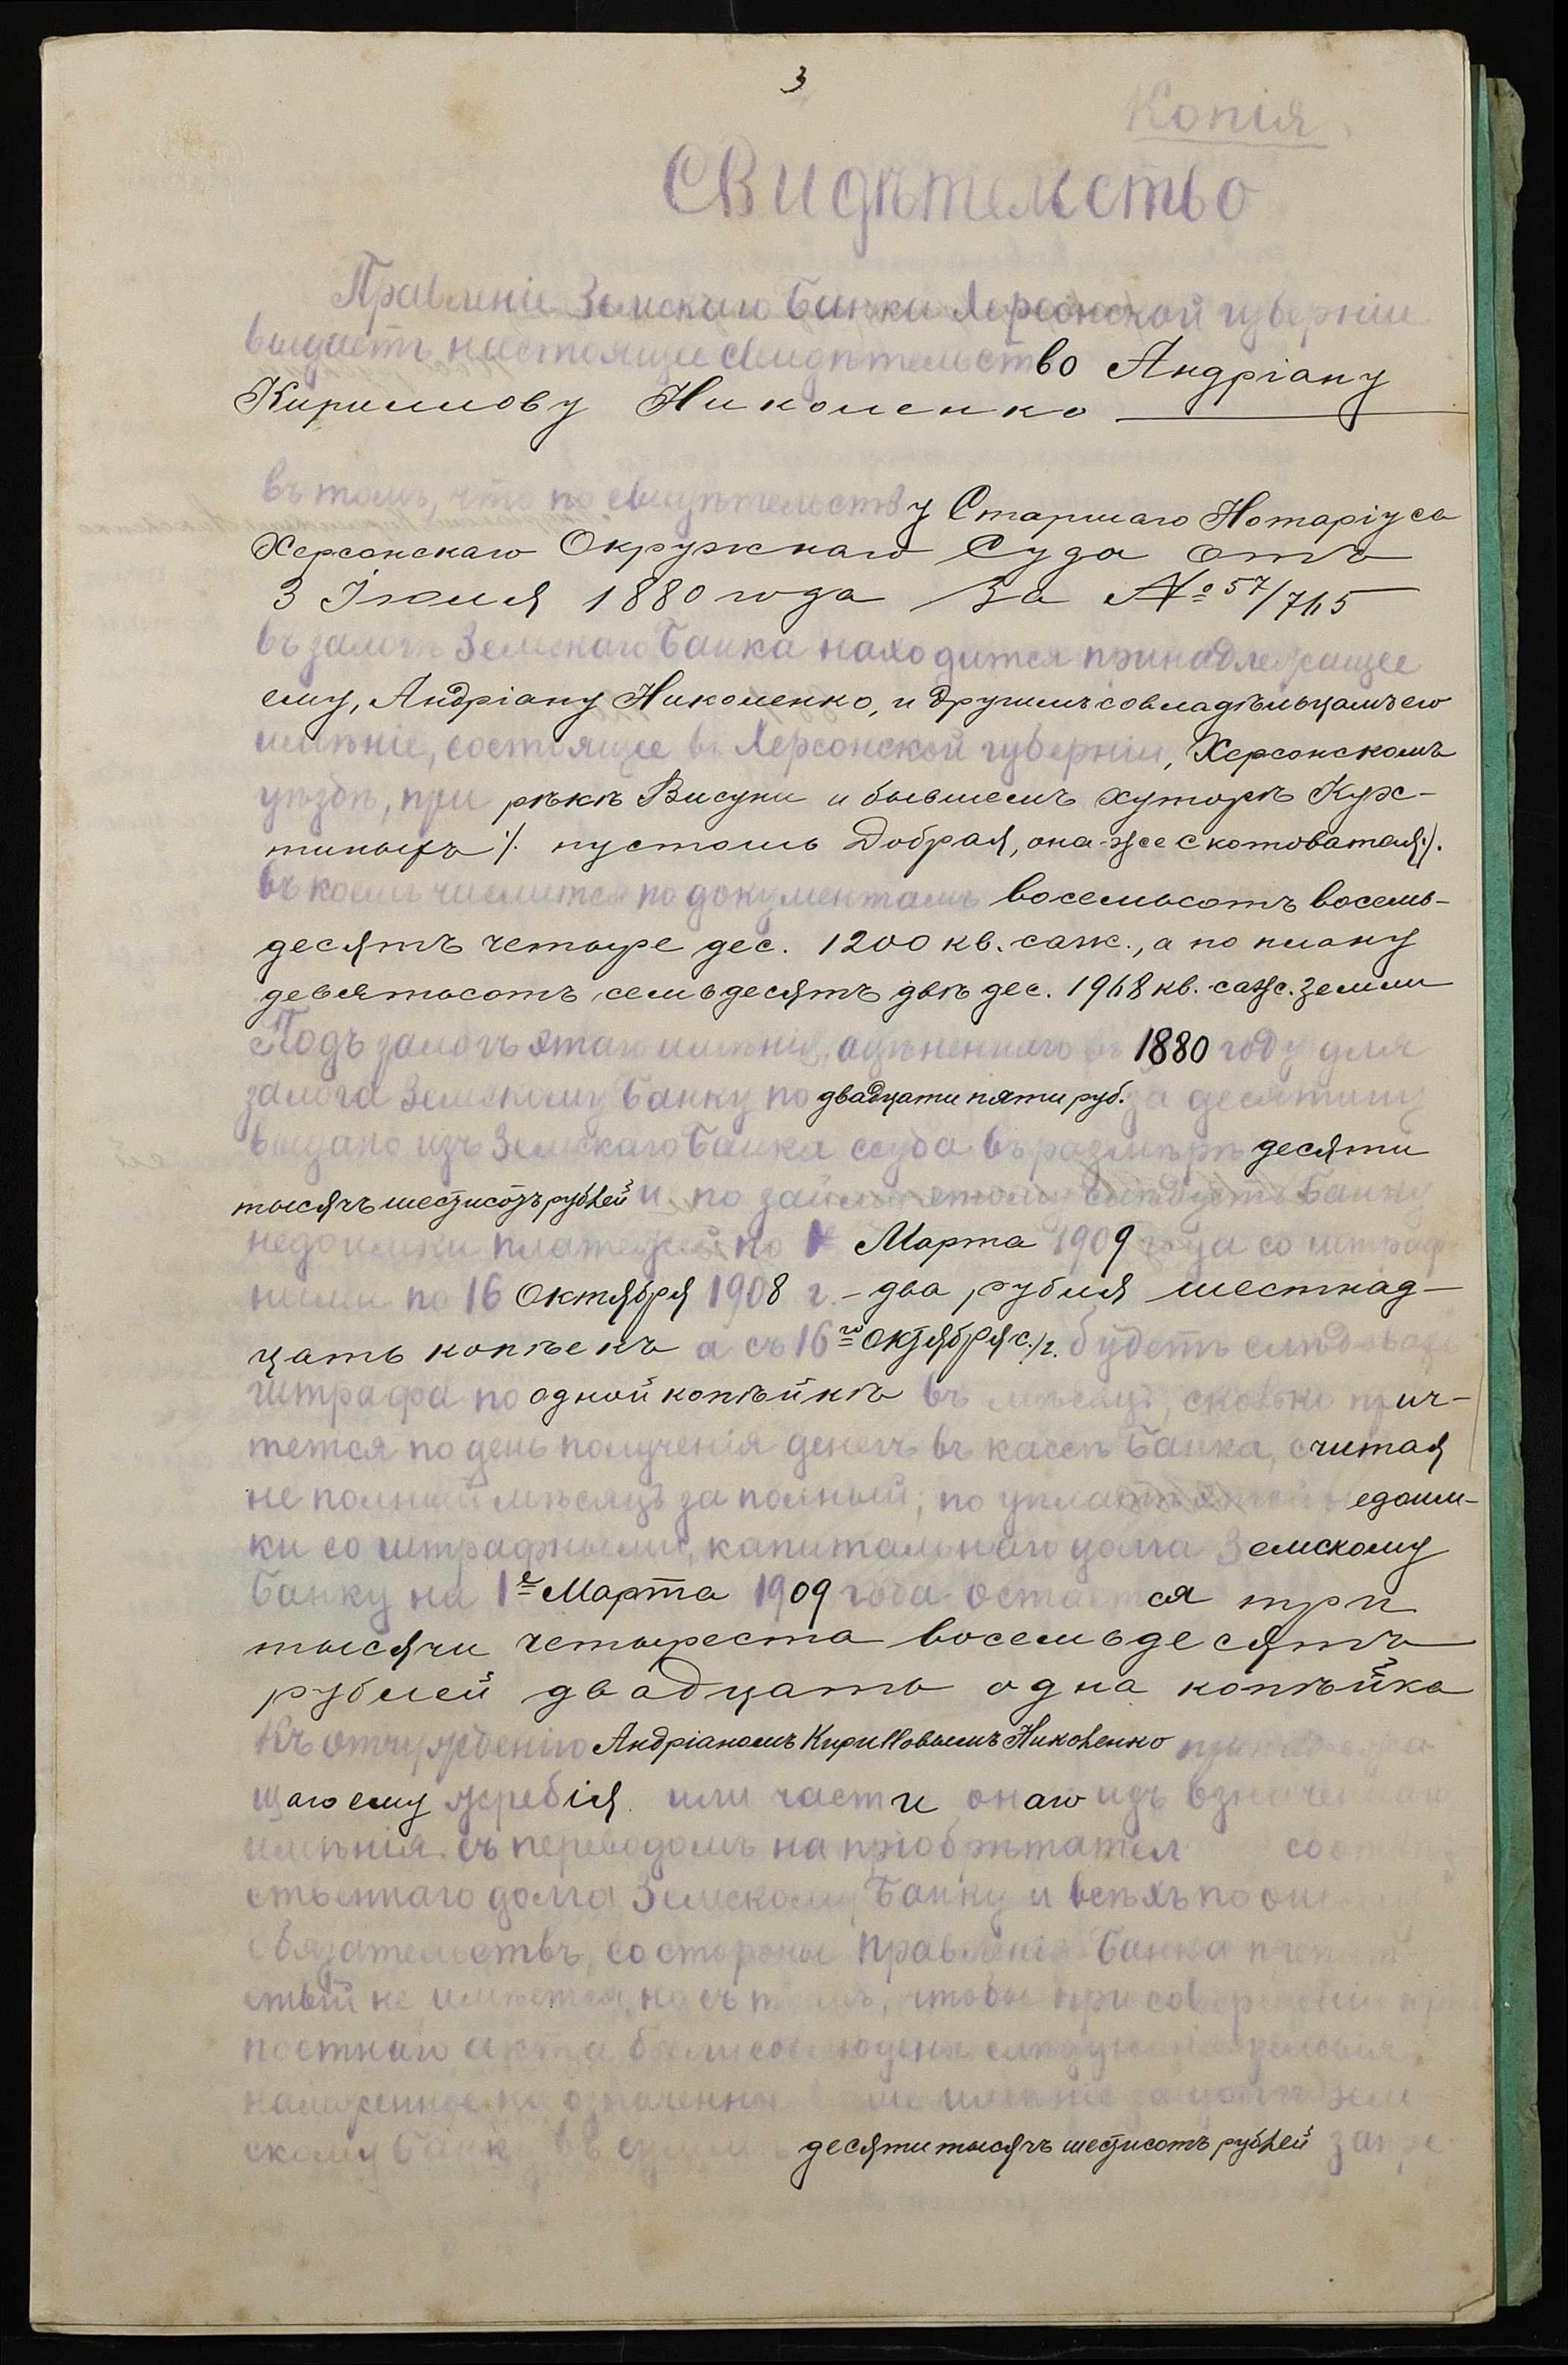 3
Копія
Свидѣтельство
Правленіе Земскаго Банка Херсонской губерніи
выдаетъ настоящее свидѣтельство Андріану
Кириллову Николенко
въ томъ, что по свидѣтельству Старшаго Нотаріуса
Херсонскаго Окружнаго Суда отъ
3 Іюля 1880 года за № 57/765
въ залогѣ Земскаго Банка находится принадлежащее
ему, Андріану Николенко, и другимъ совладѣльцамъ его
имѣніе, состоящее въ Херсонской губерніи, Херсонскомъ
уѣздѣ, при рѣкѣ Висуни и бывшемъ хуторѣ
/. пустошь Добрая, она-же Скотоватая/.
въ коемъ числится по документамъ восемьсотъ восемь-
десятъ четыре дес. 1200 кв. саж., а по плану
девятьсотъ семьдесятъ двѣ дес. 1968 кв. саж. земли
Подъ залогъ этаго имѣнія, оцѣненнаго въ 1880 году для
залога Земскому Банку по двадцати пяти руб. за десятину
выдано изъ Земскаго Банка ссуда въ размѣрѣ десяти
тысячъ шестисотъ рублей и по займу этому слѣдуетъ Банку
недоимки платежей по 1 Марта 1909 года со штраф
ными по 16 Октября 1908 г. - два рубля шестнад-
цать копѣекъ а съ 16го Октября с./г. будетъ слѣдовать
штрафа по одной копѣйкѣ въ мѣсяцъ, сколько прич-
тется по день полученія денегъ въ кассѣ Банка, считая
не полный мѣсяцъ за полный; по уплатѣ этой недоим-
ки со штрафными, капитальнаго долга Земскому
Банку на 1е Марта 1909 года остается три
тысячи четыреста восемьдесятъ
рублей двадцать одна копѣйка
Къ отчужденію Андріаномъ Кирилловымъ Николенко принадлежа
щаго ему жребія или части онаго изъ означеннаго
имѣнія съ переводомъ на пріобрѣтател соотвѣт
ственнаго долга Земскому Банку и всѣхъ по
обязательствъ, со стороны Правленія Банка препят
ствій не имѣется, но съ тѣмъ, чтобы при совершеніи крѣ
постнаго акта были соблюдены слѣдующія условія:
наложенное на означенное имѣніе за долгъ Зем
скому Банку въ суммѣ десяти тысячъ шестисотъ рублей запре